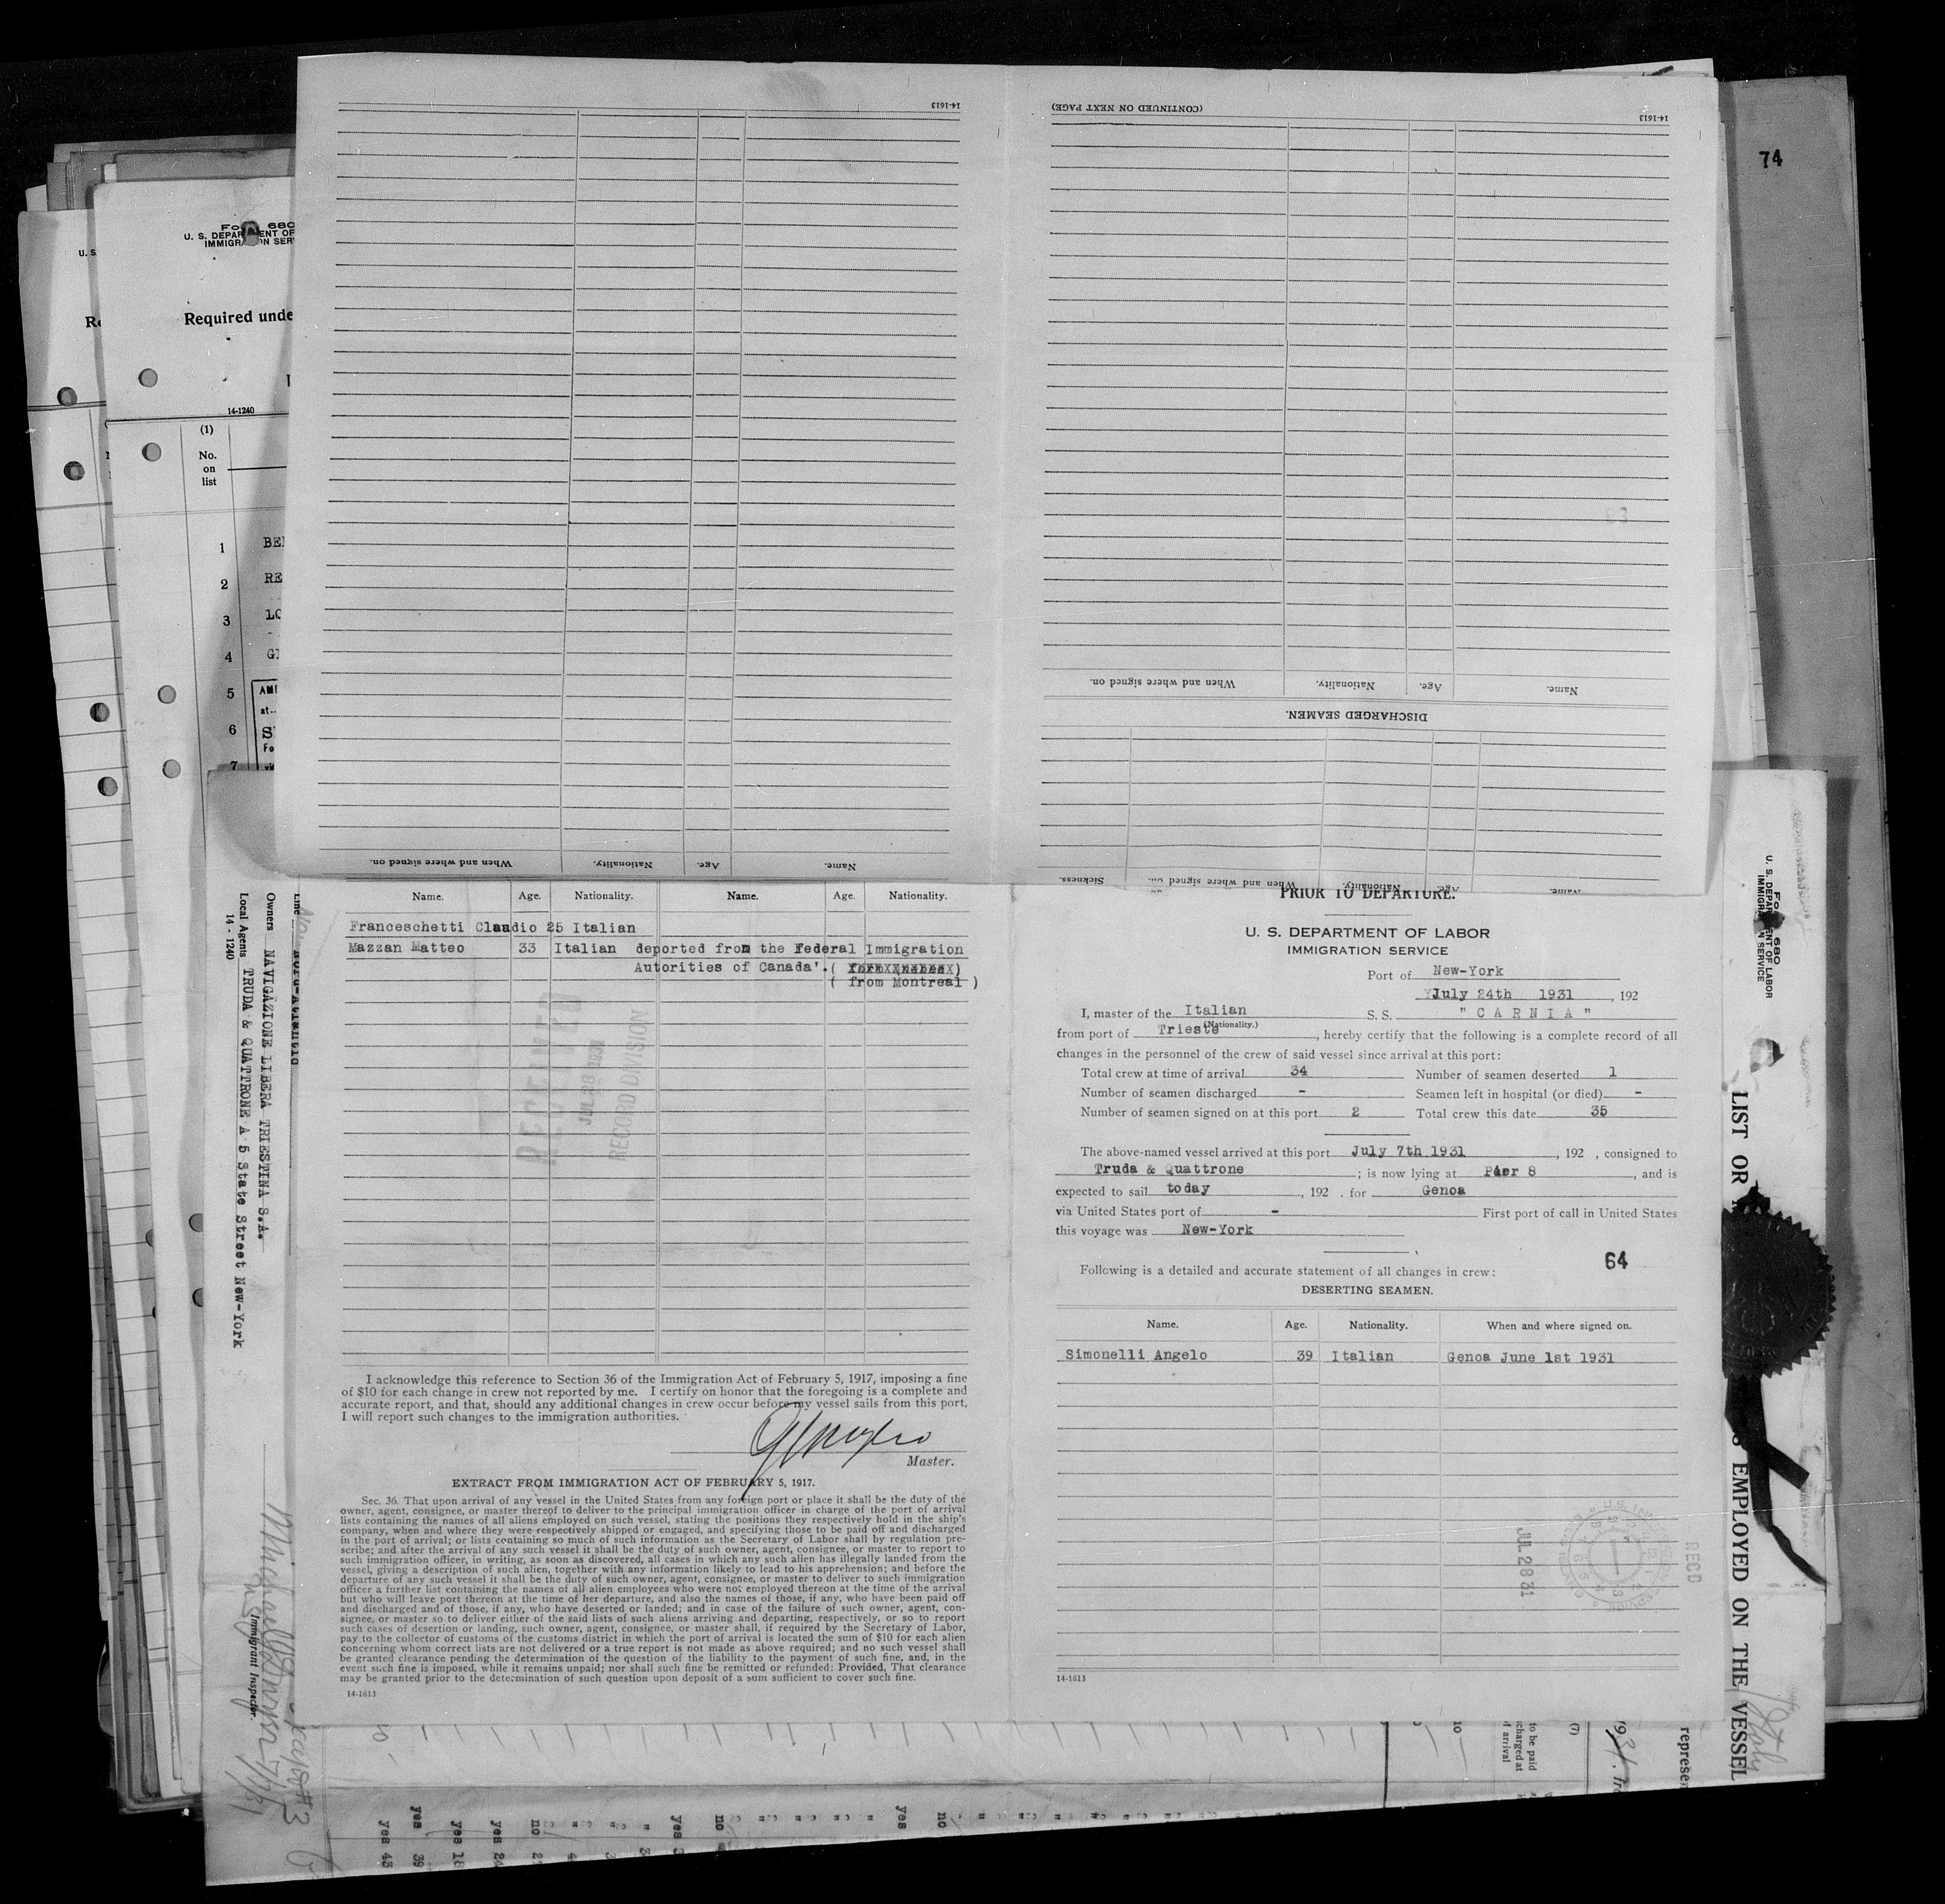 14-1613
(CONTINUED ON NEXT PAGE)
14-1613
74
U. S. DEPARTMENT OF
IMMIGRATION SER
Required unde
14-1240
(1)
No.
on
list
1 BE
2 RE
3 LO
4
5 AM
at
6
7
Name. Age. Nationality. When and where signed on.
DISCHARGED SEAMEN.
Name. Age. Nationality. When and where signed on. Sickness.
Name. Age. Nationality. When and where signed on.
Name. Age. Nationality. Name. Age. Nationality.
Franceschetti Claudio 25 Italian
Mazzan Matteo 33 Italian deported from the Federal Immigration
Autorities of Canada'.(
( from Montreal )
RECEIVED
JUL 28 1931
RECORD DIVISION
I acknowledge this reference to Section 36 of the Immigration Act of February 5, 1917, imposing a fine
of $10 for each change in crew not reported by me. I certify on honor that the foregoing is a complete and
accurate report, and that, should any additional changes in crew occur before my vessel sails from this port,
I will report such changes to the immigration authorities.
Master.
EXTRACT FROM IMMIGRATION ACT OF FEBRUARY 5, 1917.
Sec. 36. That upon arrival of any vessel in the United States from any foreign port or place it shall be the duty of the
owner, agent, consignee, or master thereof to deliver to the principal immigration officer in charge of the port of arrival
lists containing the names of all aliens employed on such vessel, stating the positions they respectively hold in the ship's
company, when and where they were respectively shipped or engaged, and specifying those to be paid off and discharged
in the port of arrival; or lists containing so much of such information as the Secretary of Labor shall by regulation pre-
scribe; and after the arrival of any such vessel it shall be the duty of such owner, agent, consignee, or master to report to
such immigration officer, in writing, as soon as discovered, all cases in which any such alien has illegally landed from the
vessel, giving a description of such alien, together with any information likely to lead to his apprehension; and before the
departure of any such vessel it shall be the duty of such owner, agent, consignee, or master to deliver to such immigration
officer a further list containing the names of all alien employees who were not employed thereon at the time of the arrival
but who will leave port thereon at the time of her departure, and also the names of those, if any, who have been paid off
and discharged and of those, if any, who have deserted or landed; and in case of the failure of such owner, agent, con-
signee, or master so to deliver either of the said lists of such aliens arriving and departing, respectively, or so to report
such cases of desertion or landing, such owner, agent, consignee, or master shall, if required by the Secretary of Labor,
pay to the collector of customs of the customs district in which the port of arrival is located the sum of $10 for each alien
concerning whom correct lists are not delivered or a true report is not made as above required; and no such vessel shall
be granted clearance pending the determination of the question of the liability to the payment of such fine, and, in the
event such fine is imposed, while it remains unpaid; nor shall such fine be remitted or refunded: Provided, That clearance
may be granted prior to the determination of such question upon deposit of a sum sufficient to cover such fine.
14-1613
PRIOR TO DEPARTURE.
U. S. DEPARTMENT OF LABOR
IMMIGRATION SERVICE
Port of New-York
July 24th 1931, 192
I, master of the Italian S. S. " C A R N I A "
(Nationality.)
from port of Trieste, hereby certify that the following is a complete record of all
changes in the personnel of the crew of said vessel since arrival at this port:
Total crew at time of arrival 34 Number of seamen deserted 1
Number of seamen discharged - Seamen left in hospital (or died) -
Number of seamen signed on at this port 2 Total crew this date 35
The above-named vessel arrived at this port July 7th 1931, 192 , consigned to
Truda & Quattrone; is now lying at Pier 8, and is
expected to sail today, 192 . for Genoa
via United States port of - First port of call in United States
this voyage was New-York
64
Following is a detailed and accurate statement of all changes in crew:
DESERTING SEAMEN.
Name. Age. Nationality. When and where signed on.
Simonelli Angelo 39 Italian Genoa June 1st 1931
JUL 28 31
RECD
14-1613
Owners NAVIGAZIONE LIBERA TRIESTINA S.A.
Local Agents TRUDA & QUATTRONE A 5 State Street New-York
14 - 1240
Immigrant Inspector.
U. S. DEPARTMENT OF LABOR
IMMIGRATION SERVICE
LIST OR
EMPLOYED ON THE VESSEL
Italy
represe
1931
(7)
to be paid
charged at
of arrival
10
yes 43
yes 39
yes 18
yes 24
no
yes
no
yes
no